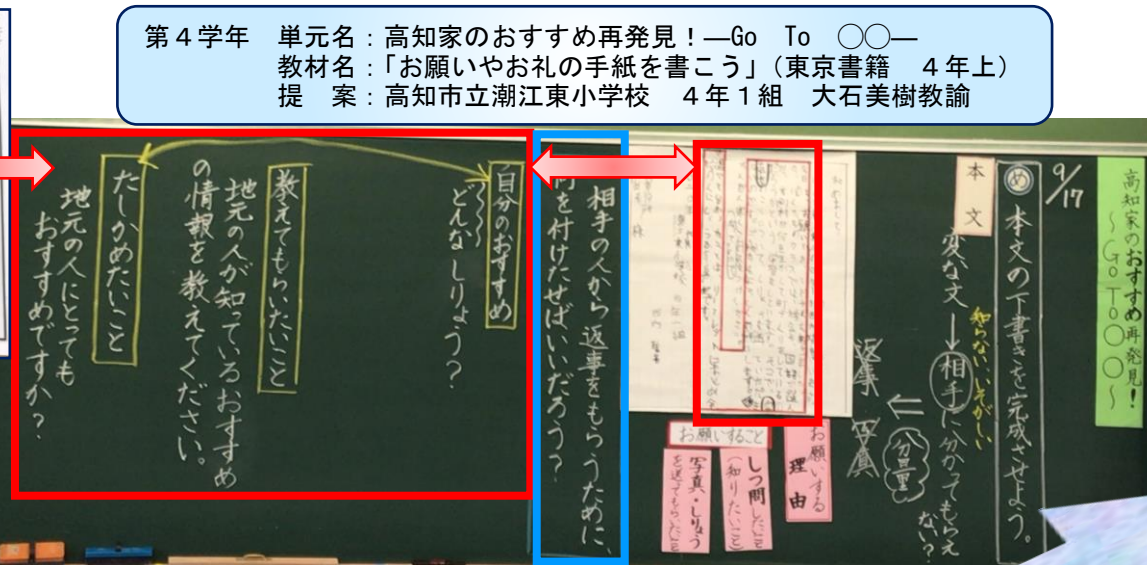 第４学年　単元名：高知家のおすすめ再発見！―Go　To　○○―
教材名：「お願いやお礼の手紙を書こう」（東京書籍　４年上）
提　案：高知市立潮江東小学校　４年１組　大石美樹教諭
高知家のおすすめ再発見！
～ＧｏＴｏ○○～
9/17
め 本文の下書きを完成させよう。
本文
知らない、いそがしい
変な文→相手に分かってもらえ
ない？
分量
返事　写真
お願いする
理由
お願いすること
しつ問したいこと
（知りたいこと）
写真・しりょう
を送ってもらいたいこと
相手の人から返事をもらうために、
何を付けたせばいいだろう？
自分のおすすめ
どんなしりょう？
教えてもらいたいこと
地元の人が知っているおすすめ
の情報を教えてください。
たしかめたいこと
地元の人にとっても
おすすめですか？